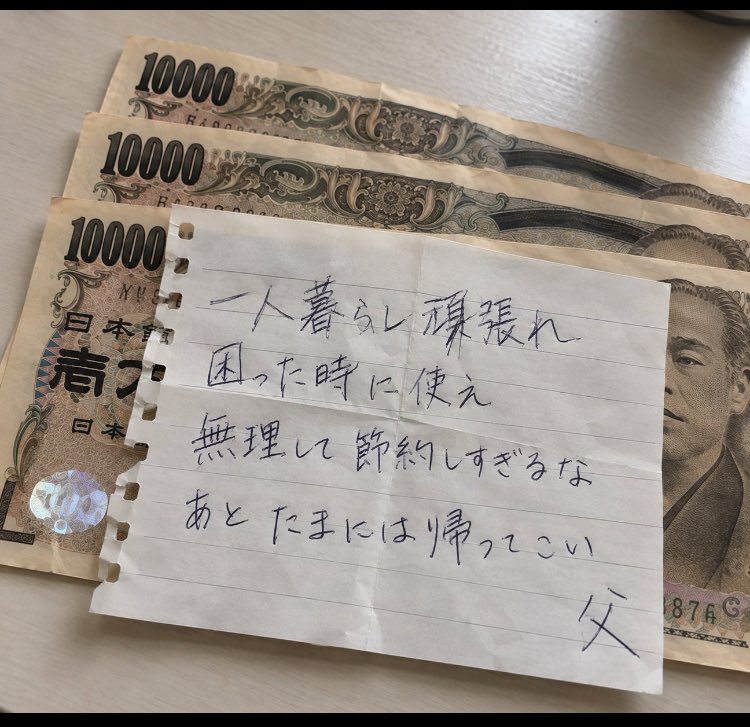 10000
10000
10000
日本
壱
日本
一人暮らし頑張れ
困った時に使え
無理して節約しすぎるな
あと たまには帰ってこい
父